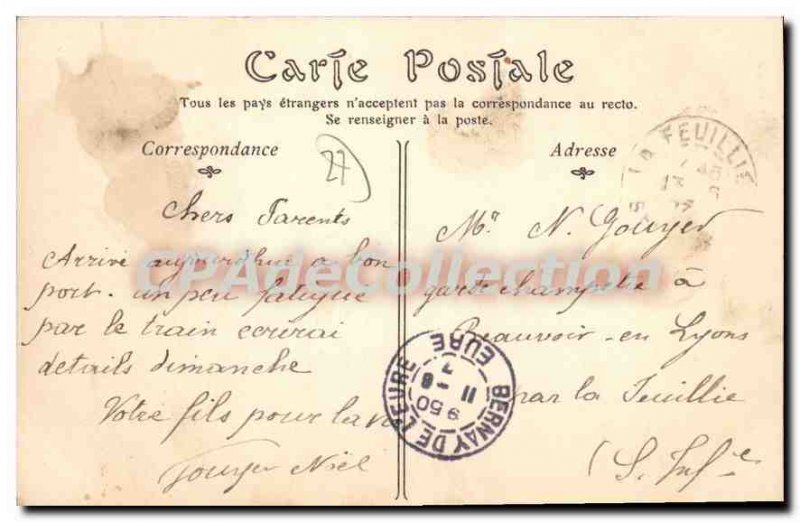 Carte Postale
Tous les pays étrangers n'acceptent pas la correspondance au recto.
Se renseigner à la poste.
Correspondance
27
Chers Parents
Arrivé aujourd'hui a bon
port. un peu fatigue
par le train ecrirai
details dimanche
Votre fils pour la vie
Gouyer Niel
Adresse
Mr N. Gouyer
garde champetre à
Beauvoir-en Lyons
par la Feuillie
(S. Infre
LA FEUILLIE
BERNAY DE L'EURE
EURE
9 50
11 - 8
CPAdeCollection